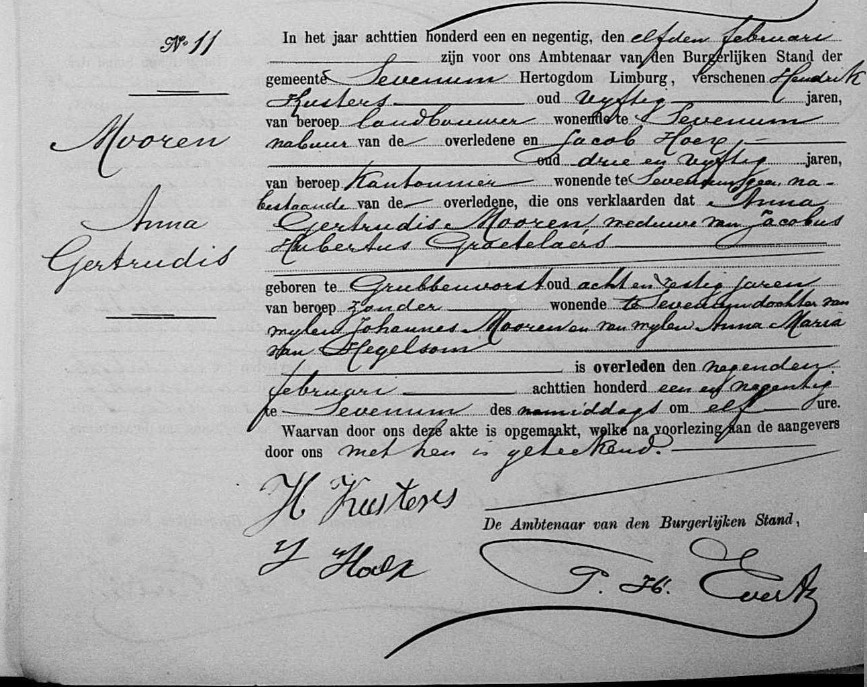 No 11
Mooren
Anna
Gertrudis
In het jaar achttien honderd een en negentig, den elfden februari
zijn voor ons Ambtenaar van den Burgerlijken Stand der
gemeente Sevenum Hertogdom Limburg, verschenen Hendrik
Kusters oud vyftig jaren,
van beroep landbouwer wonende te Sevenum
nabuur van de overledene en Jacob Hoex
oud drie en vyftig jaren,
van beroep Kantonnier wonende te Sevenum geen na-
bestaande van de overledene, die ons verklaarden dat Anna
Gertrudis Mooren, weduwe van Jacobus
Hubertus Groetelaers
geboren te Grubbenvorst oud acht en zestig jaren
van beroep zonder wonende te Sevenum dochter van
wylen Johannes Mooren en van wylen Anna Maria
van Hegelsom
is overleden den negenden
februari achttien honderd een en negentig
te Sevenum des namiddags om elf ure.
Waarvan door ons deze akte is opgemaakt, welke na voorlezing aan de aangevers
door ons met hen is geteekend.
H Kusters
De Ambtenaar van den Burgerlijken Stand,
J Hoex
P. H. Evertz